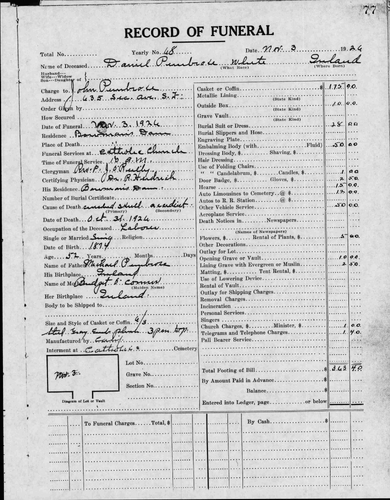 77
RECORD OF FUNERAL
Total No. Yearly No. 68 Date Nov. 3 1926
Name of Deceased Daniel Pembroke White Ireland
(What Race) (Where Born)
Husband—
Wife—Widow
Son—Daughter of
Charge to John Pembroke
Address 635 Sec. Ave. S.E.
Order Given by
How Secured
Date of Funeral Nov. 3, 1926
Residence Bowmans Dam
Place of Death
Funeral Services at Catholic Church
Time of Funeral Service 9 A.M.
Clergyman Rev. P. J. O'Reilly
Certifying Physician
His Residence Bowmans Dam
Number of Burial Certificate
Cause of Death crushed skull accident
(Primary) (Secondary)
Date of Death Oct. 31, 1926
Occupation of the Deceased Labour
Single or Married Sing Religion
Date of Birth 1874
Age 52 Years Months Days
Name of Father Michael Pembroke
His Birthplace Ireland
Name of Mother Bridget O'Connor
(Maiden Name)
Her Birthplace Ireland
Body to be Shipped to
Size and Style of Casket or Coffin 6/3
Manufactured by
Interment at Catholic Cemetery
Lot No.
Grave No.
Section No.
Nov. 3.
Diagram of Lot or Vault
Casket or Coffin $ 175 00
Metallic Lining
(State Kind)
Outside Box 10 00
(State Kind)
Grave Vault
(State Kind)
Burial Suit or Dress 28 00
Burial Slippers and Hose
Engraving Plate
Embalming Body (with Fluid) $ 50 00
Dressing Body, $ Shaving, $
Hair Dressing
Use of Folding Chairs
" " Candelabrum, $ Candles, $ 1 00
Door Badge, $ Gloves, $ 2 50
Hearse 15 00
Auto Limousines to Cemetery @ 12 00
Autos to R. R. Station @
Other Vehicle Service 50 00
Aeroplane Service
Death Notices in Newspapers
(Names of Newspapers)
Flowers, $ Rental of Plants, $ 5 00
Other Decorations
Outlay for Lot
Opening Grave or Vault 10 00
Lining Grave with Evergreen or Muslin 2 50
Matting, $ Tent Rental, $
Use of Lowering Device
Rental of Vault
Outlay for Shipping Charges
Removal Charges
Incineration
Personal Services
Singers
Church Charges, $ Minister, $ 1 00
Telegrams and Telephone Charges 1 40
Pall Bearer Service
Total Footing of Bill $ 363 40
By Amount Paid in Advance
Balance
Entered into Ledger, page or below
To Funeral Charges Total, $ By Cash $